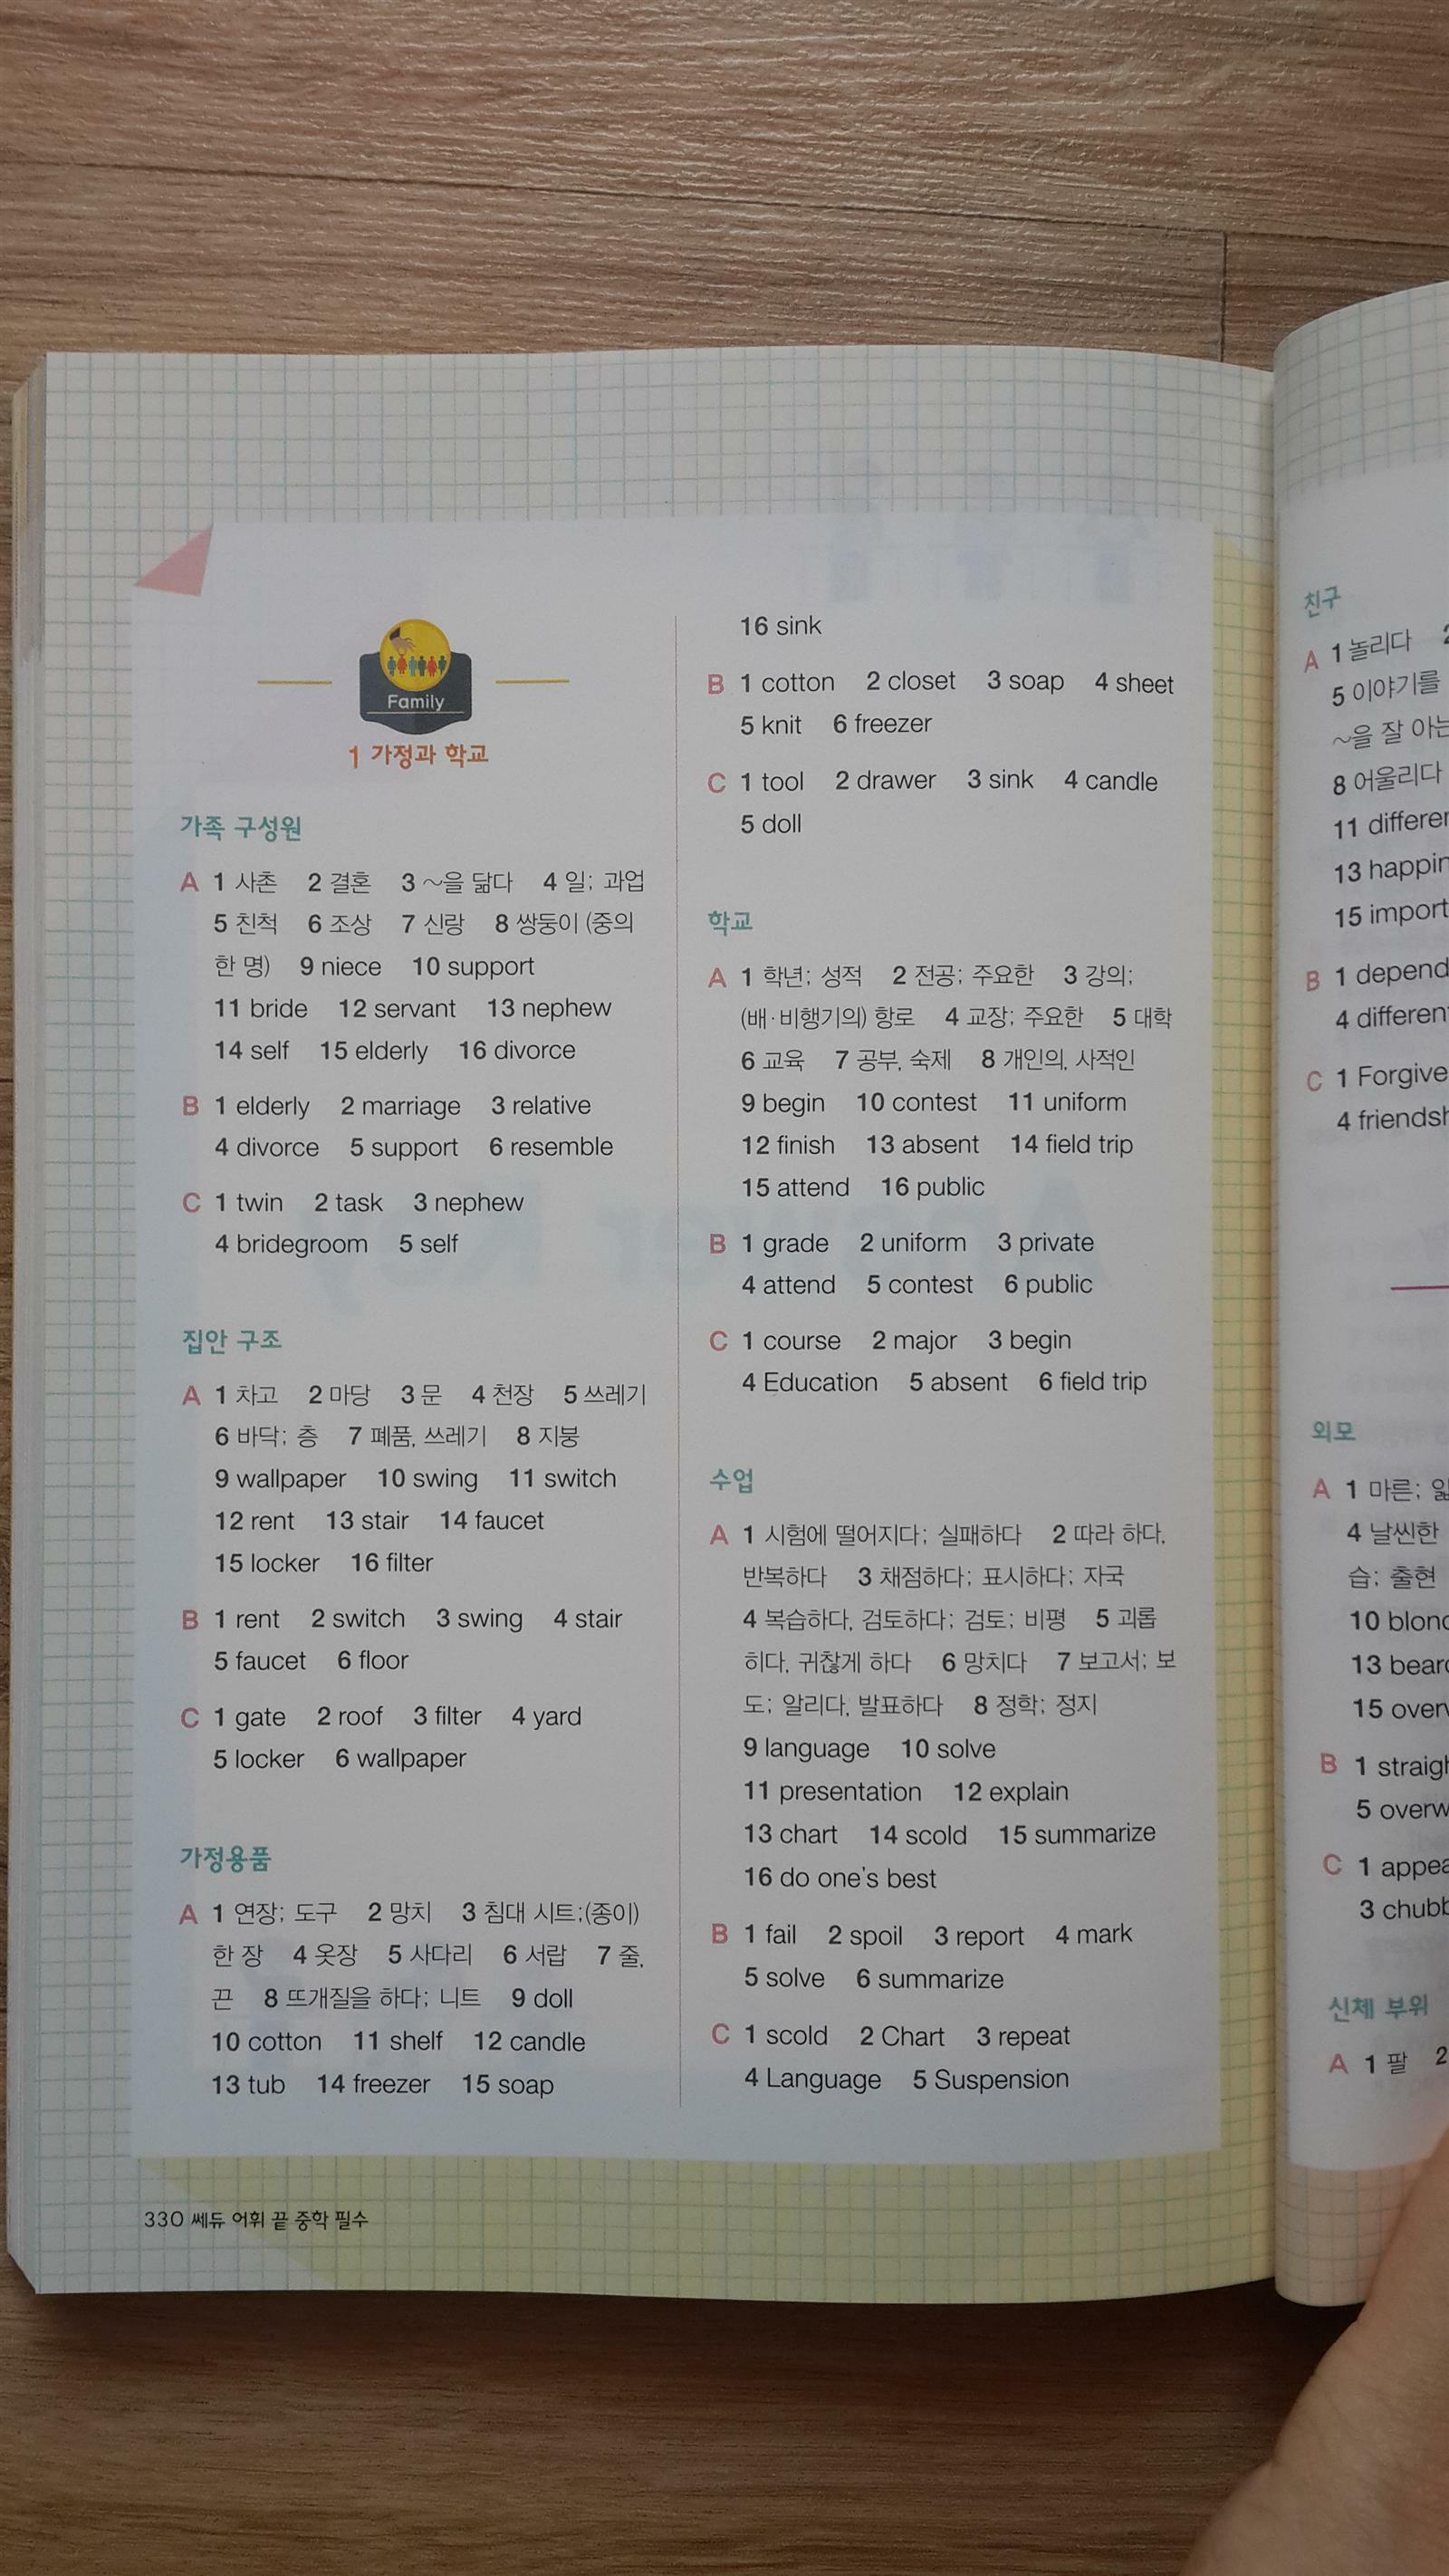 Family
1 가정과 학교
가족 구성원
A 1 사촌 2 결혼 3 ~을 닮다 4 일; 과업
5 친척 6 조상 7 신랑 8 쌍둥이 (중의
한 명) 9 niece 10 support
11 bride 12 servant 13 nephew
14 self 15 elderly 16 divorce
B 1 elderly 2 marriage 3 relative
4 divorce 5 support 6 resemble
C 1 twin 2 task 3 nephew
4 bridegroom 5 self
집안 구조
A 1 차고 2 마당 3 문 4 천장 5 쓰레기
6 바닥; 층 7 폐품, 쓰레기 8 지붕
9 wallpaper 10 swing 11 switch
12 rent 13 stair 14 faucet
15 locker 16 filter
B 1 rent 2 switch 3 swing 4 stair
5 faucet 6 floor
C 1 gate 2 roof 3 filter 4 yard
5 locker 6 wallpaper
가정용품
A 1 연장; 도구 2 망치 3 침대 시트;(종이)
한 장 4 옷장 5 사다리 6 서랍 7 줄,
끈 8 뜨개질을 하다; 니트 9 doll
10 cotton 11 shelf 12 candle
13 tub 14 freezer 15 soap
16 sink
B 1 cotton 2 closet 3 soap 4 sheet
5 knit 6 freezer
C 1 tool 2 drawer 3 sink 4 candle
5 doll
학교
A 1 학년; 성적 2 전공; 주요한 3 강의;
(배·비행기의) 항로 4 교장; 주요한 5 대학
6 교육 7 공부, 숙제 8 개인의, 사적인
9 begin 10 contest 11 uniform
12 finish 13 absent 14 field trip
15 attend 16 public
B 1 grade 2 uniform 3 private
4 attend 5 contest 6 public
C 1 course 2 major 3 begin
4 Education 5 absent 6 field trip
수업
A 1 시험에 떨어지다; 실패하다 2 따라 하다,
반복하다 3 채점하다; 표시하다; 자국
4 복습하다, 검토하다; 검토; 비평 5 괴롭
히다, 귀찮게 하다 6 망치다 7 보고서; 보
도; 알리다, 발표하다 8 정학; 정지
9 language 10 solve
11 presentation 12 explain
13 chart 14 scold 15 summarize
16 do one's best
B 1 fail 2 spoil 3 report 4 mark
5 solve 6 summarize
C 1 scold 2 Chart 3 repeat
4 Language 5 Suspension
330 쎄듀 어휘 끝 중학 필수
친구
A 1 놀리다 2
5 이야기를
~을 잘 아는
8 어울리다
11 differen
13 happin
15 import
B 1 depend
4 different
C 1 Forgive
4 friendsh
외모
A 1 마른; 얇
4 날씬한
습; 출현
10 blond
13 beard
15 overw
B 1 straigh
5 overw
C 1 appea
3 chubb
신체 부위
A 1 팔 2